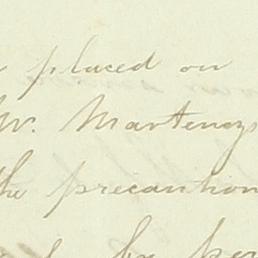 placed on
Mr. Martenezs
the precaution
be per